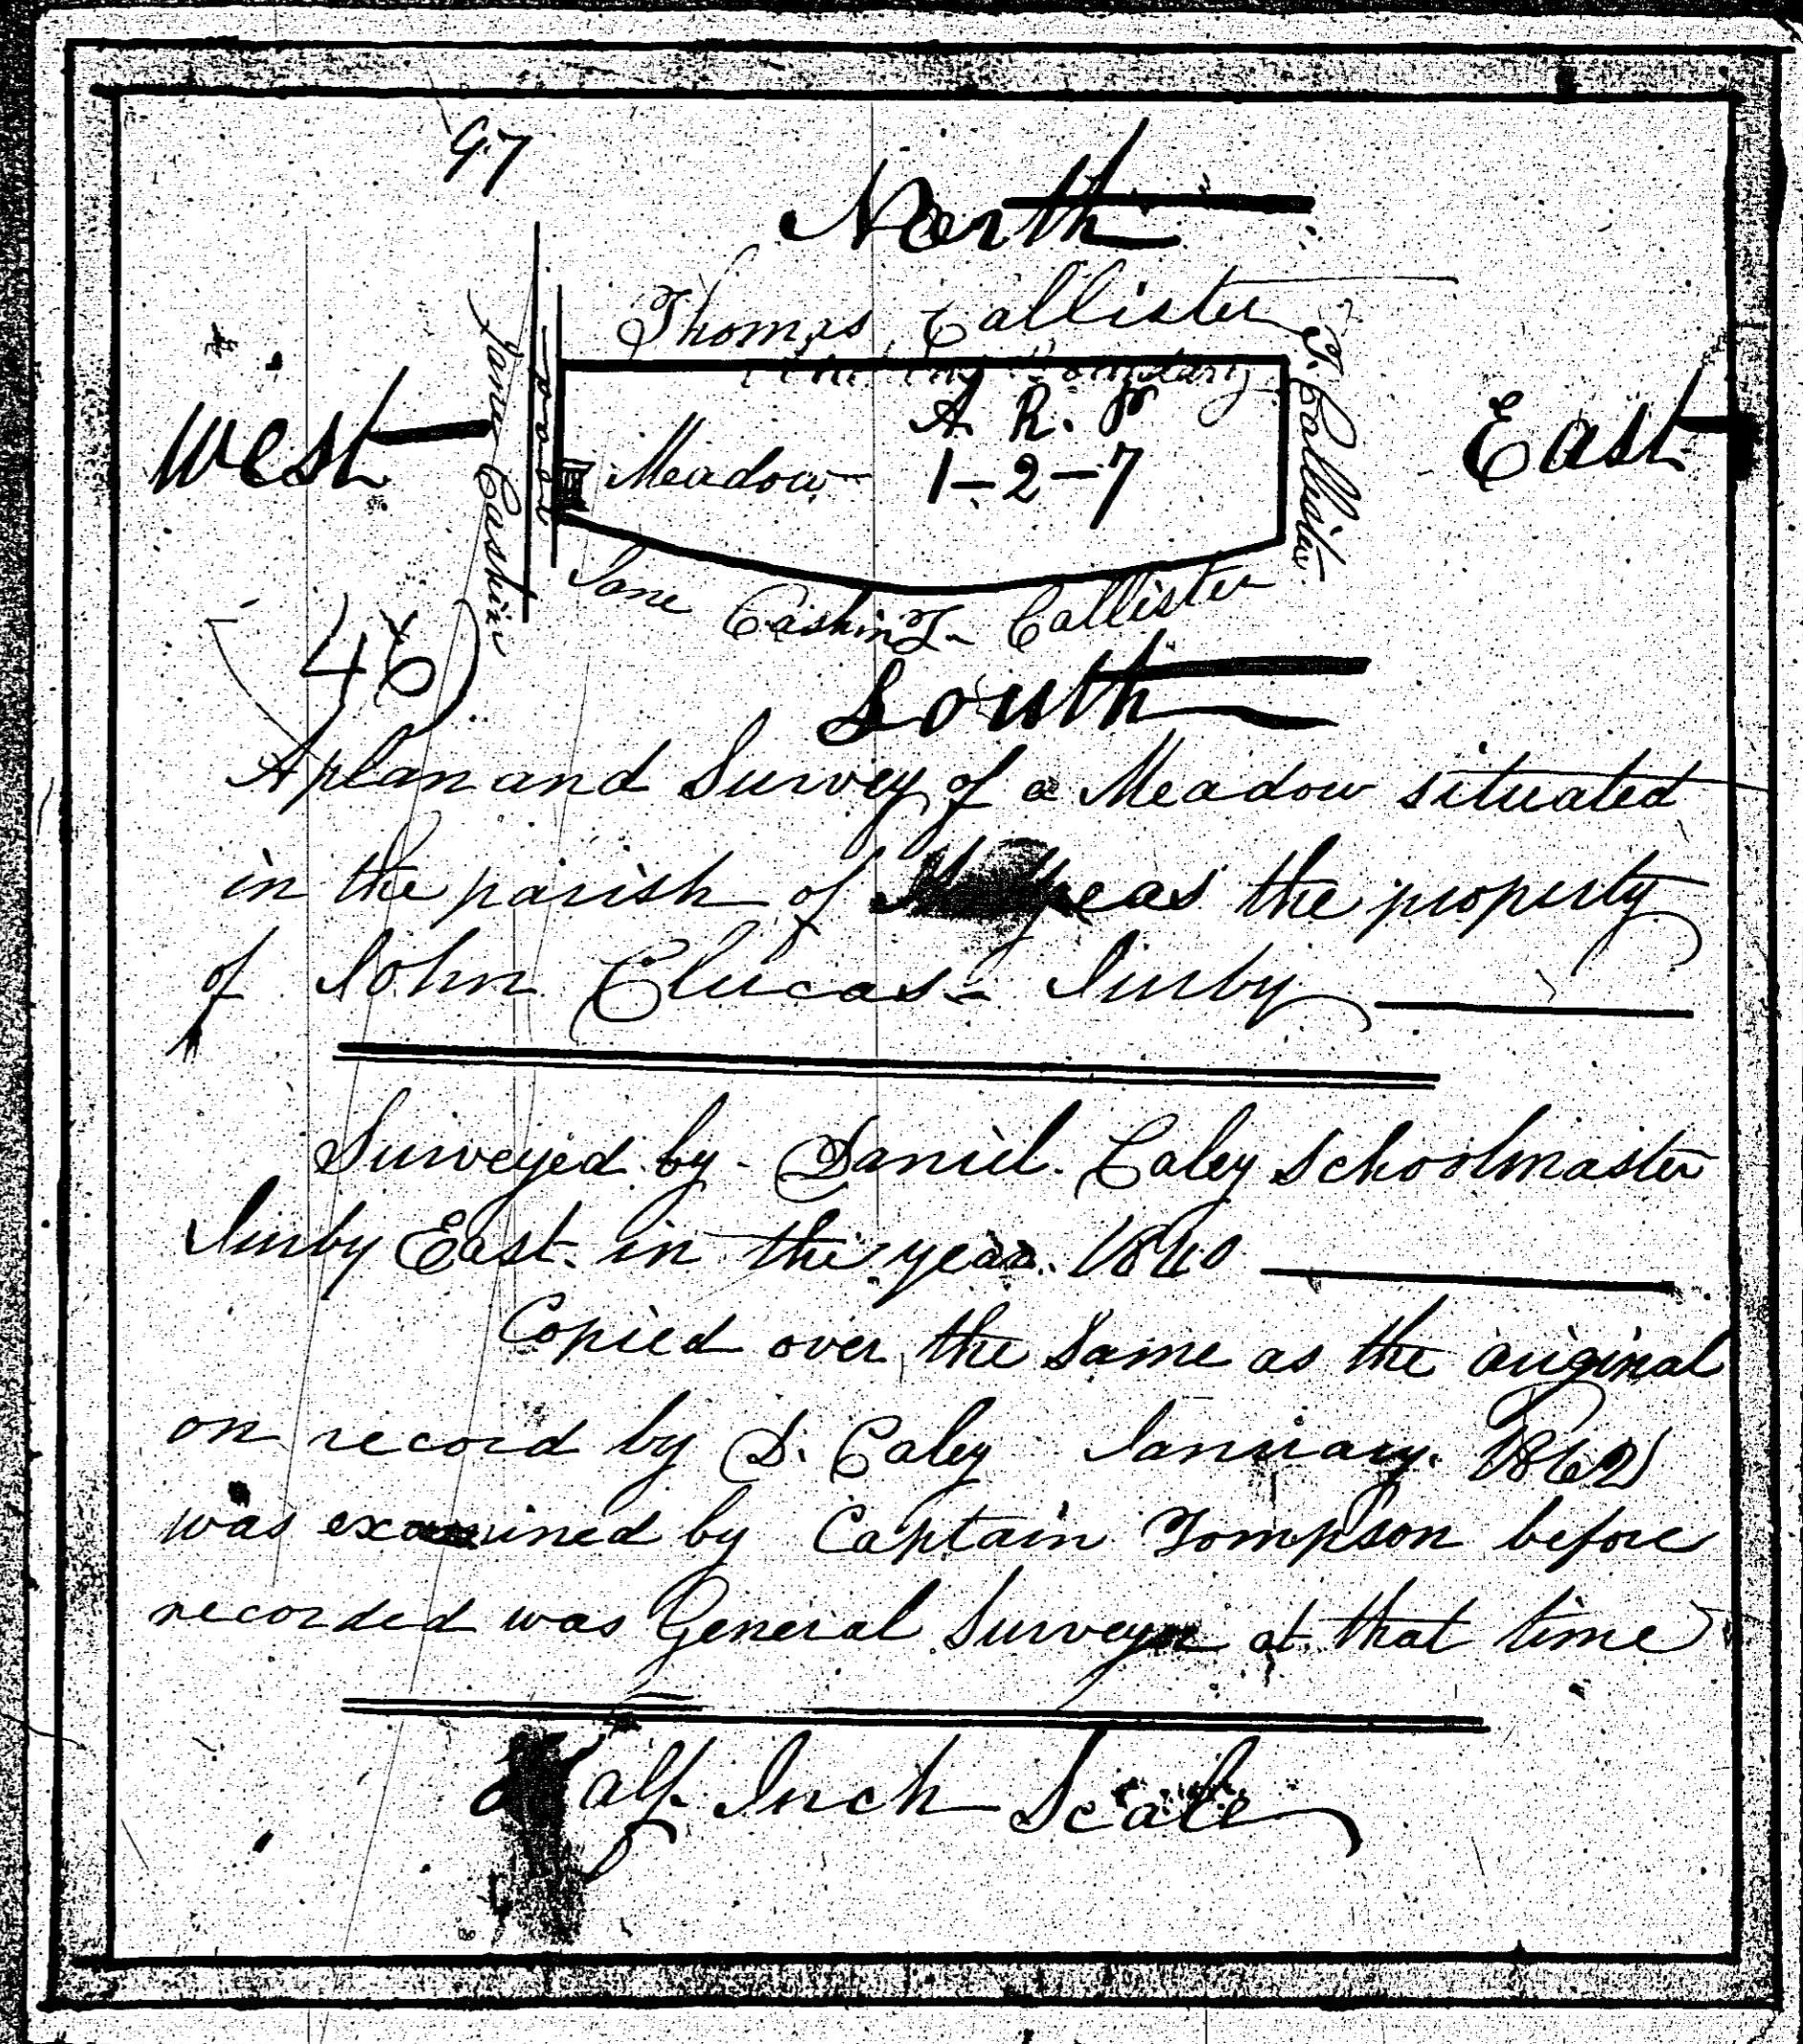 97
North
Thomas Callister
T. Callister
A. R. P
Meadow 1-2-7
West
East
Jane Caskin
Jane Caskin T- Callister
46
South
A plan and Survey of a Meadow situated
in the parish of the property
of John Clucas- Jurby
Surveyed by Daniel Caley Schoolmaster
Jurby East. in the year 1840
Copied over the Same as the original
on record by D. Caley January. 1862
was examined by Captain Tompson before
recorded was General Surveyor at that time
Half Inch Scale